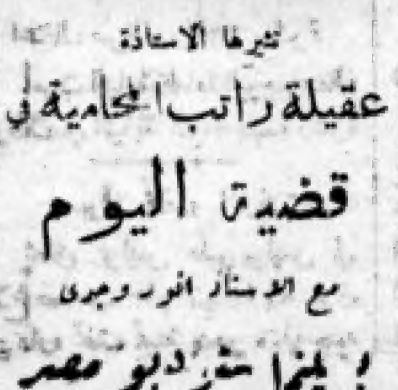 تثيرها الاستاذة
عقيلة راتب المحامية في
قضية اليوم
مع الاستاذ انور وجدى
ستوديو مصر